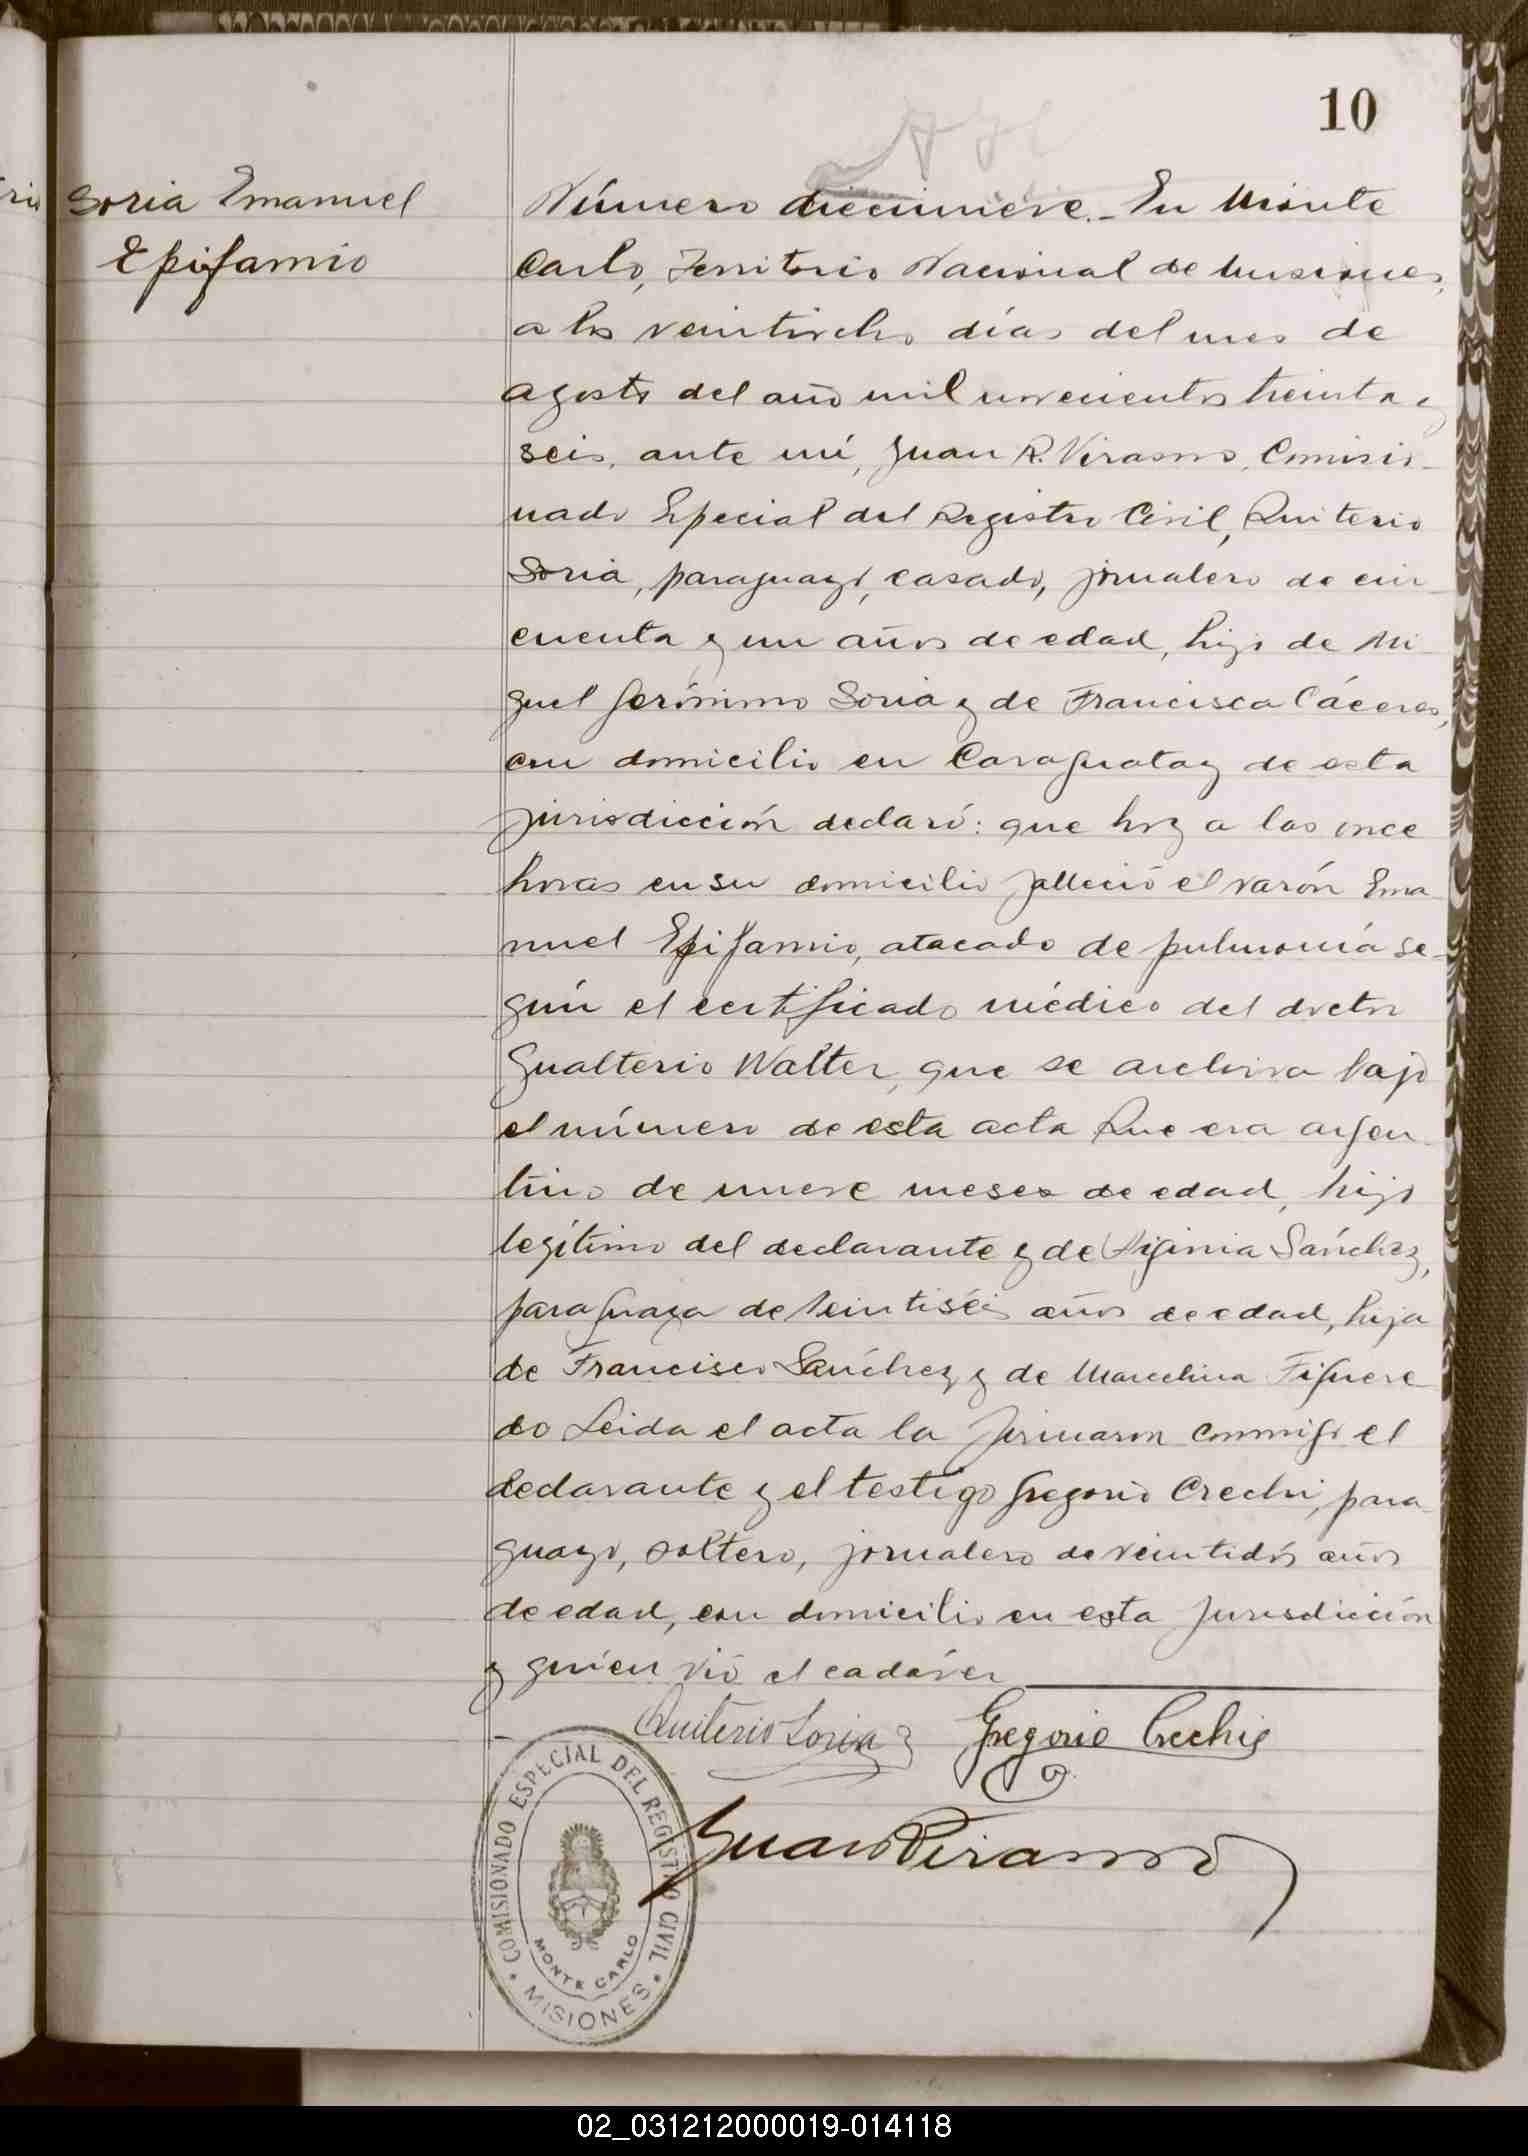 10
Soria Emanuel
Epifamio
Número diecinueve.- En Monte
Carlo, Territorio Nacional de Misiones,
a los veintiocho días del mes de
agosto del año mil novecientos treinta y
seis, ante mí, Juan R. Virasoro, Comisio-
nado Especial del Registro Civil, Quiterio
Soria, paraguayo, casado, jornalero de cin-
cuenta y un años de edad, hijo de Mi-
guel Gerónimo Soria y de Francisca Cáceres,
con domicilio en Caraguatay de esta
jurisdicción declaró: que hoy a las once
horas en su domicilio falleció el varón Ema-
nuel Epifamio, atacado de pulmonía se-
gún el certificado médico del doctor
Gualterio Walter, que se archiva bajo
el número de esta acta Que era argen-
tino de nueve meses de edad, hijo
legítimo del declarante y de Higinia Sánchez,
paraguaya de veintiséis años de edad, hija
de Francisco Sánchez y de Marcelina Figuere-
do Leida el acta la firmaron conmigo el
declarante y el testigo Gregorio Crechi, para-
guayo, soltero, jornalero de veintidós años
de edad, con domicilio en esta jurisdicción
y quien vió el cadáver
Quiterio Soria Gregorio Crechi
Juan R Virasoro
COMISIONADO ESPECIAL DEL REGISTRO CIVIL
MONTE CARLO
MISIONES
02_031212000019-014118